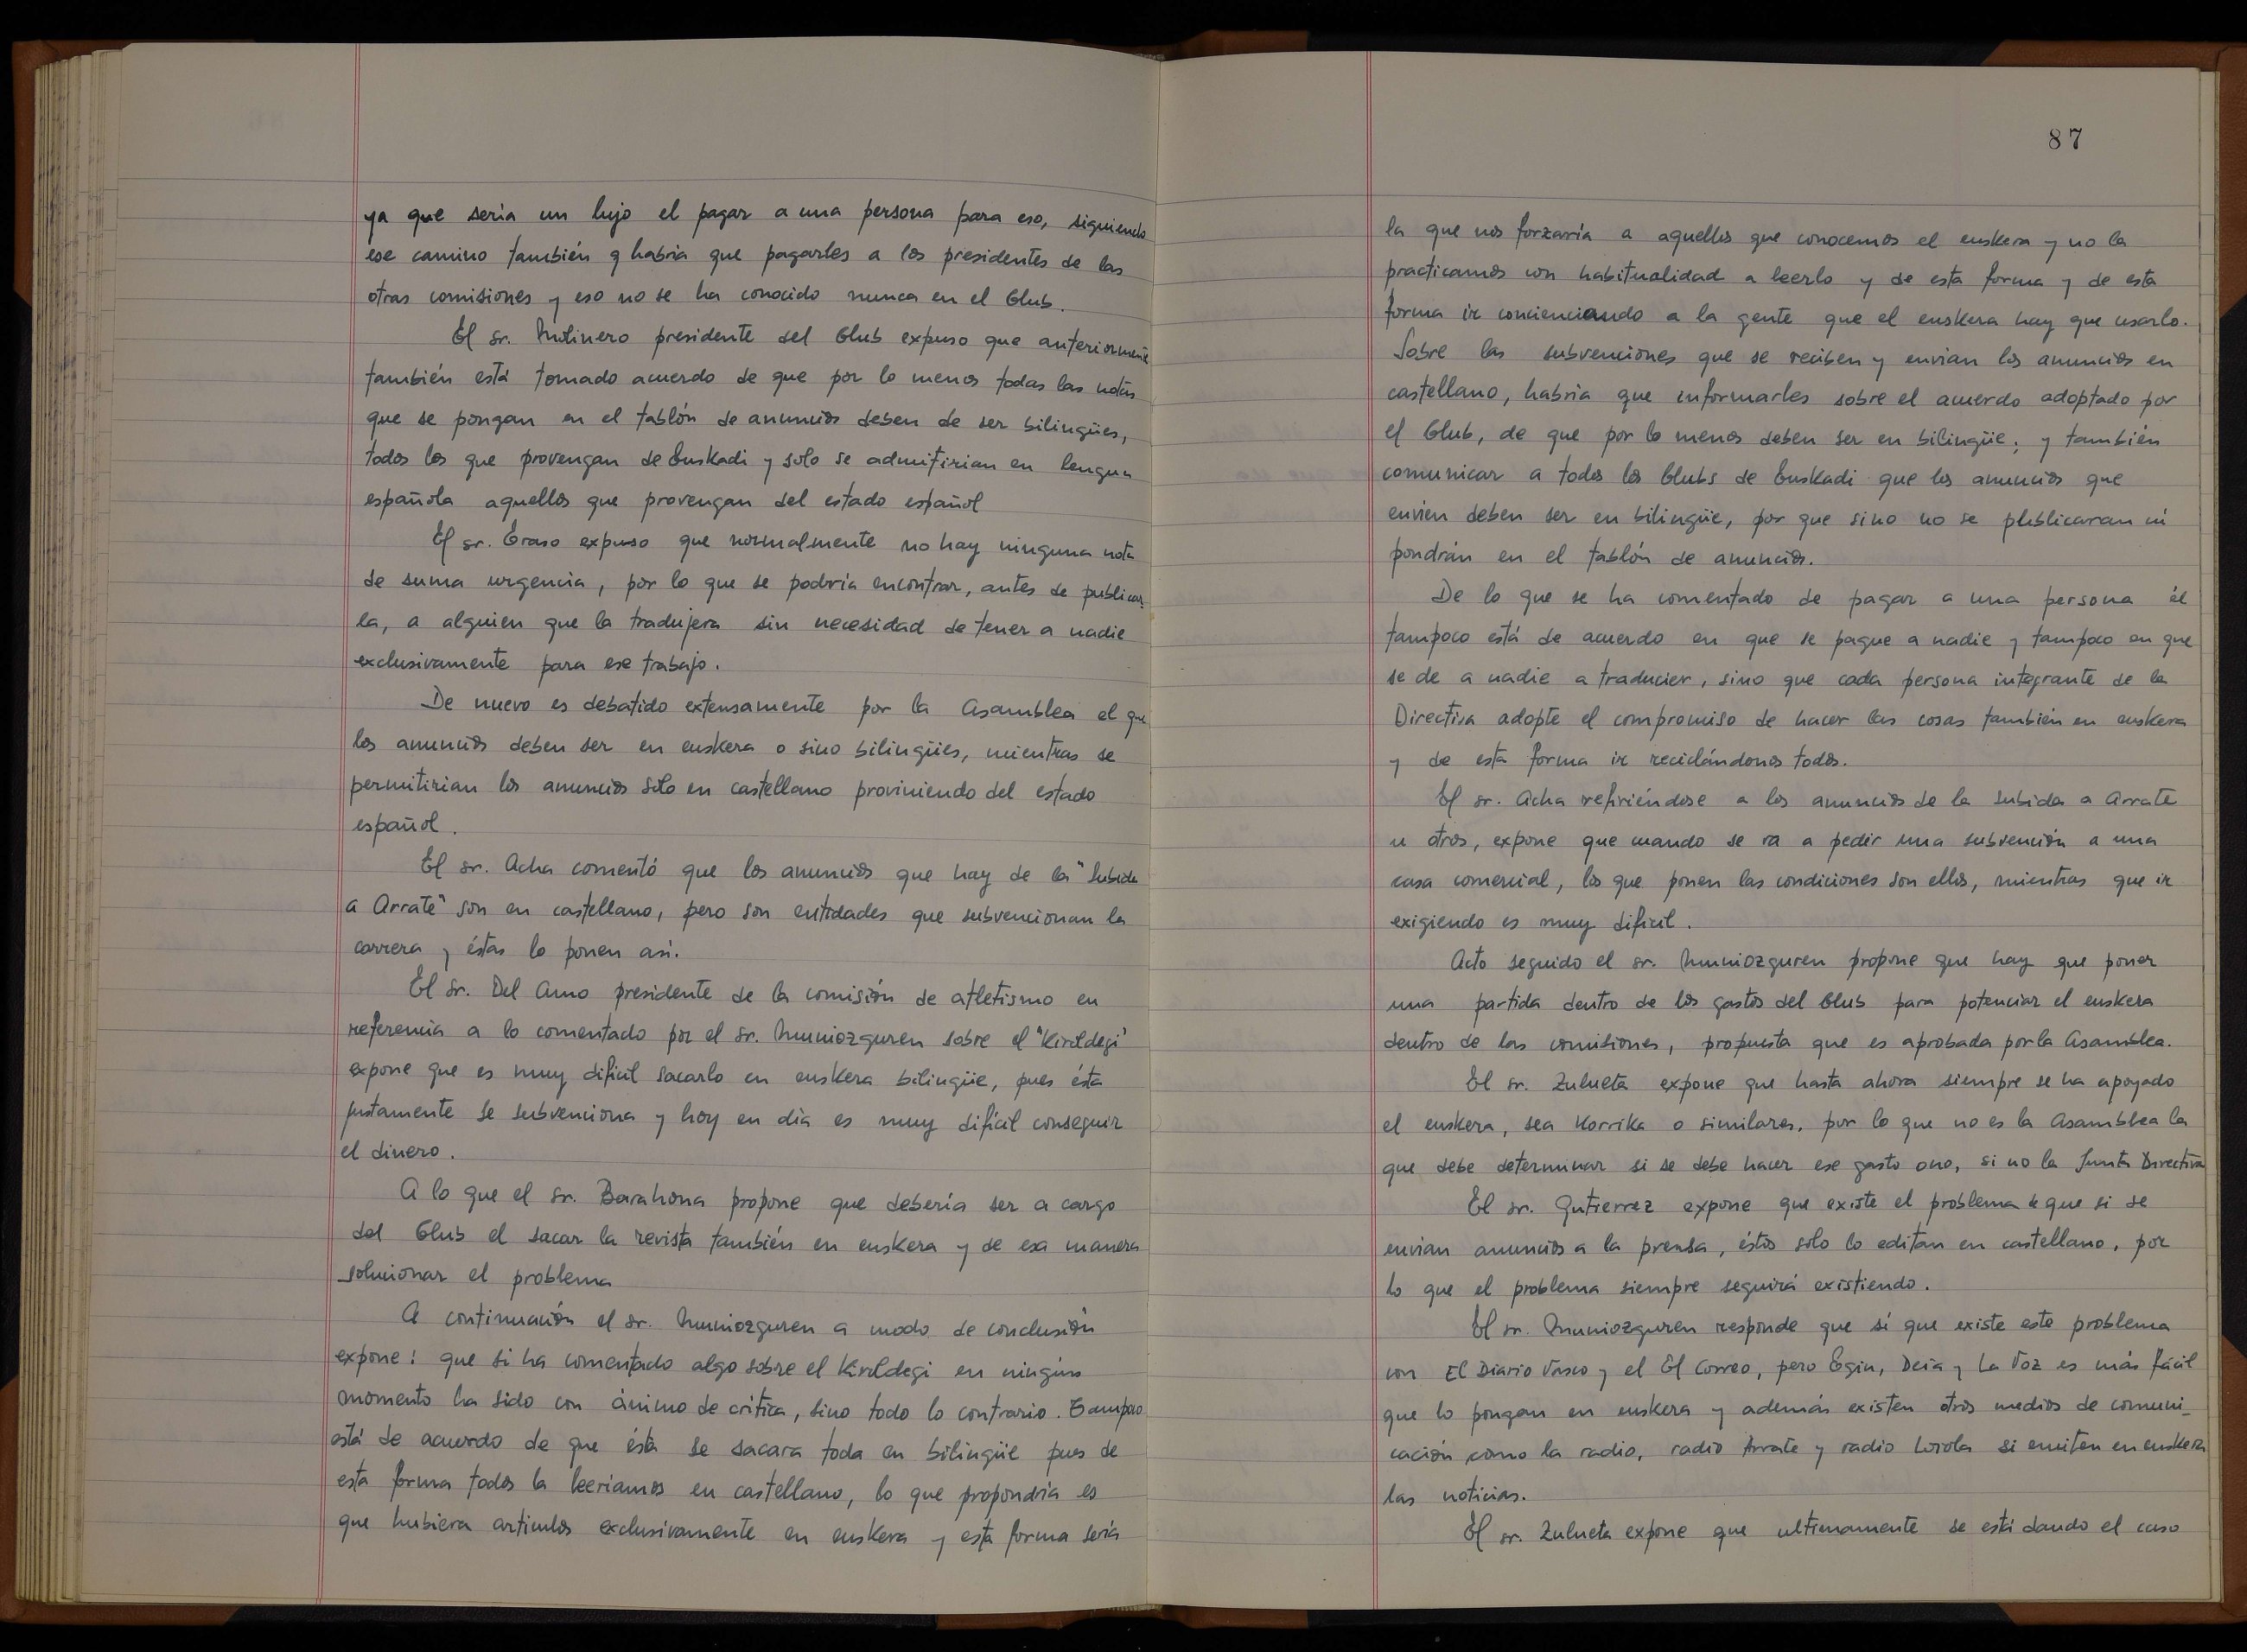 ya que seria un lujo el pagar a una persona para eso, siguiendo
ese camino también q habria que pagarles a los presidentes de las
otras comisiones y eso no se ha conocido nunca en el Club.
El sr. Molinero presidente del Club expuso que anteriormente
también está tomado acuerdo de que por lo menos todas las notas
que se pongan en el tablón de anuncios deben de ser bilingües,
todos los que provengan de Euskadi y solo se admitirian en lengua
española aquellos que provengan del estado español
El sr. Eraso expuso que normalmente no hay ninguna nota
de suma urgencia, por lo que se podría encontrar, antes de publicar
la, a alguien que la tradujera sin necesidad de tener a nadie
exclusivamente para ese trabajo.
De nuevo es debatido extensamente por la Asamblea el que
los anuncios deben ser en euskera o sino bilingües, mientras se
permitirian los anuncios solo en castellano proviniendo del estado
español.
El sr. Acha comentó que los anuncios que hay de la "Subida
a Arrate" son en castellano, pero son entidades que subvencionan la
carrera y éstas lo ponen asi.
El Sr. Del Amo presidente de la comisión de atletismo en
referencia a lo comentado por el sr. Muniozguren sobre el "Kiroldegi"
expone que es muy dificil sacarlo en euskera bilingüe, pues ésta
justamente se subvenciona y hoy en dia es muy difícil conseguir
el dinero.
A lo que el sr. Barahona propone que debería ser a cargo
del Club el sacar la revista también en euskera y de esa manera
solucionar el problema
A continuación el sr. Muniozguren a modo de conclusión
expone: que si ha comentado algo sobre el Kiroldegi en ningún
momento ha sido con ánimo de crítica, sino todo lo contrario. Tampoco
está de acuerdo de que ésta se sacara toda en bilingüe pues de
esta forma todos la leeriamos en castellano, lo que propondria es
que hubiera articulos exclusivamente en euskera y esta forma sería
87
la que nos forzaría a aquellos que conocemos el euskera y no la
practicamos con habitualidad a leerlo y de esta forma y de esta
forma ir concienciando a la gente que el euskera hay que usarlo.
Sobre las subvenciones que se reciben y envian los anuncios en
castellano, habria que informarles sobre el acuerdo adoptado por
el Club, de que por lo menos deben ser en bilingüe; y también
comunicar a todos los Clubs de Euskadi que los anuncios que
envien deben ser en bilingüe, por que sino no se publicaran ni
pondrán en el tablón de anuncios.
De lo que se ha comentado de pagar a una persona él
tampoco está de acuerdo en que se pague a nadie y tampoco en que
se de a nadie a traducier, sino que cada persona integrante de la
Directiva adopte el compromiso de hacer las cosas también en euskera
y de esta forma ir reciclándonos todos.
El sr. Acha refiriéndose a los anuncios de la subida a Arrate
u otros, expone que cuando se va a pedir una subvención a una
casa comercial, los que ponen las condiciones son ellos, mientras que ir
exigiendo es muy dificil.
Acto seguido el sr. Muniozguren propone que hay que poner
una partida dentro de los gastos del Club para potenciar el euskera
dentro de las comisiones, propuesta que es aprobada por la Asamblea.
El sr. Zulueta expone que hasta ahora siempre se ha apoyado
el euskera, sea Korrika o similares, por lo que no es la Asamblea la
que debe determinar si se debe hacer ese gasto o no, si no la Junta Directiva
El sr. Gutierrez expone que existe el problema de que si se
envian anuncios a la prensa, éstos solo lo editan en castellano, por
lo que el problema siempre seguirá existiendo.
El sr. Muniozguren responde que sí que existe este problema
con El Diario Vasco y el El Correo, pero Egin, Deia y La Voz es más fácil
que lo pongan en euskera y además existen otros medios de comuni_
cación como la radio, radio Arrate y radio Loiola si emiten en euskera
las noticias.
El sr. Zulueta expone que ultimamente se está dando el caso